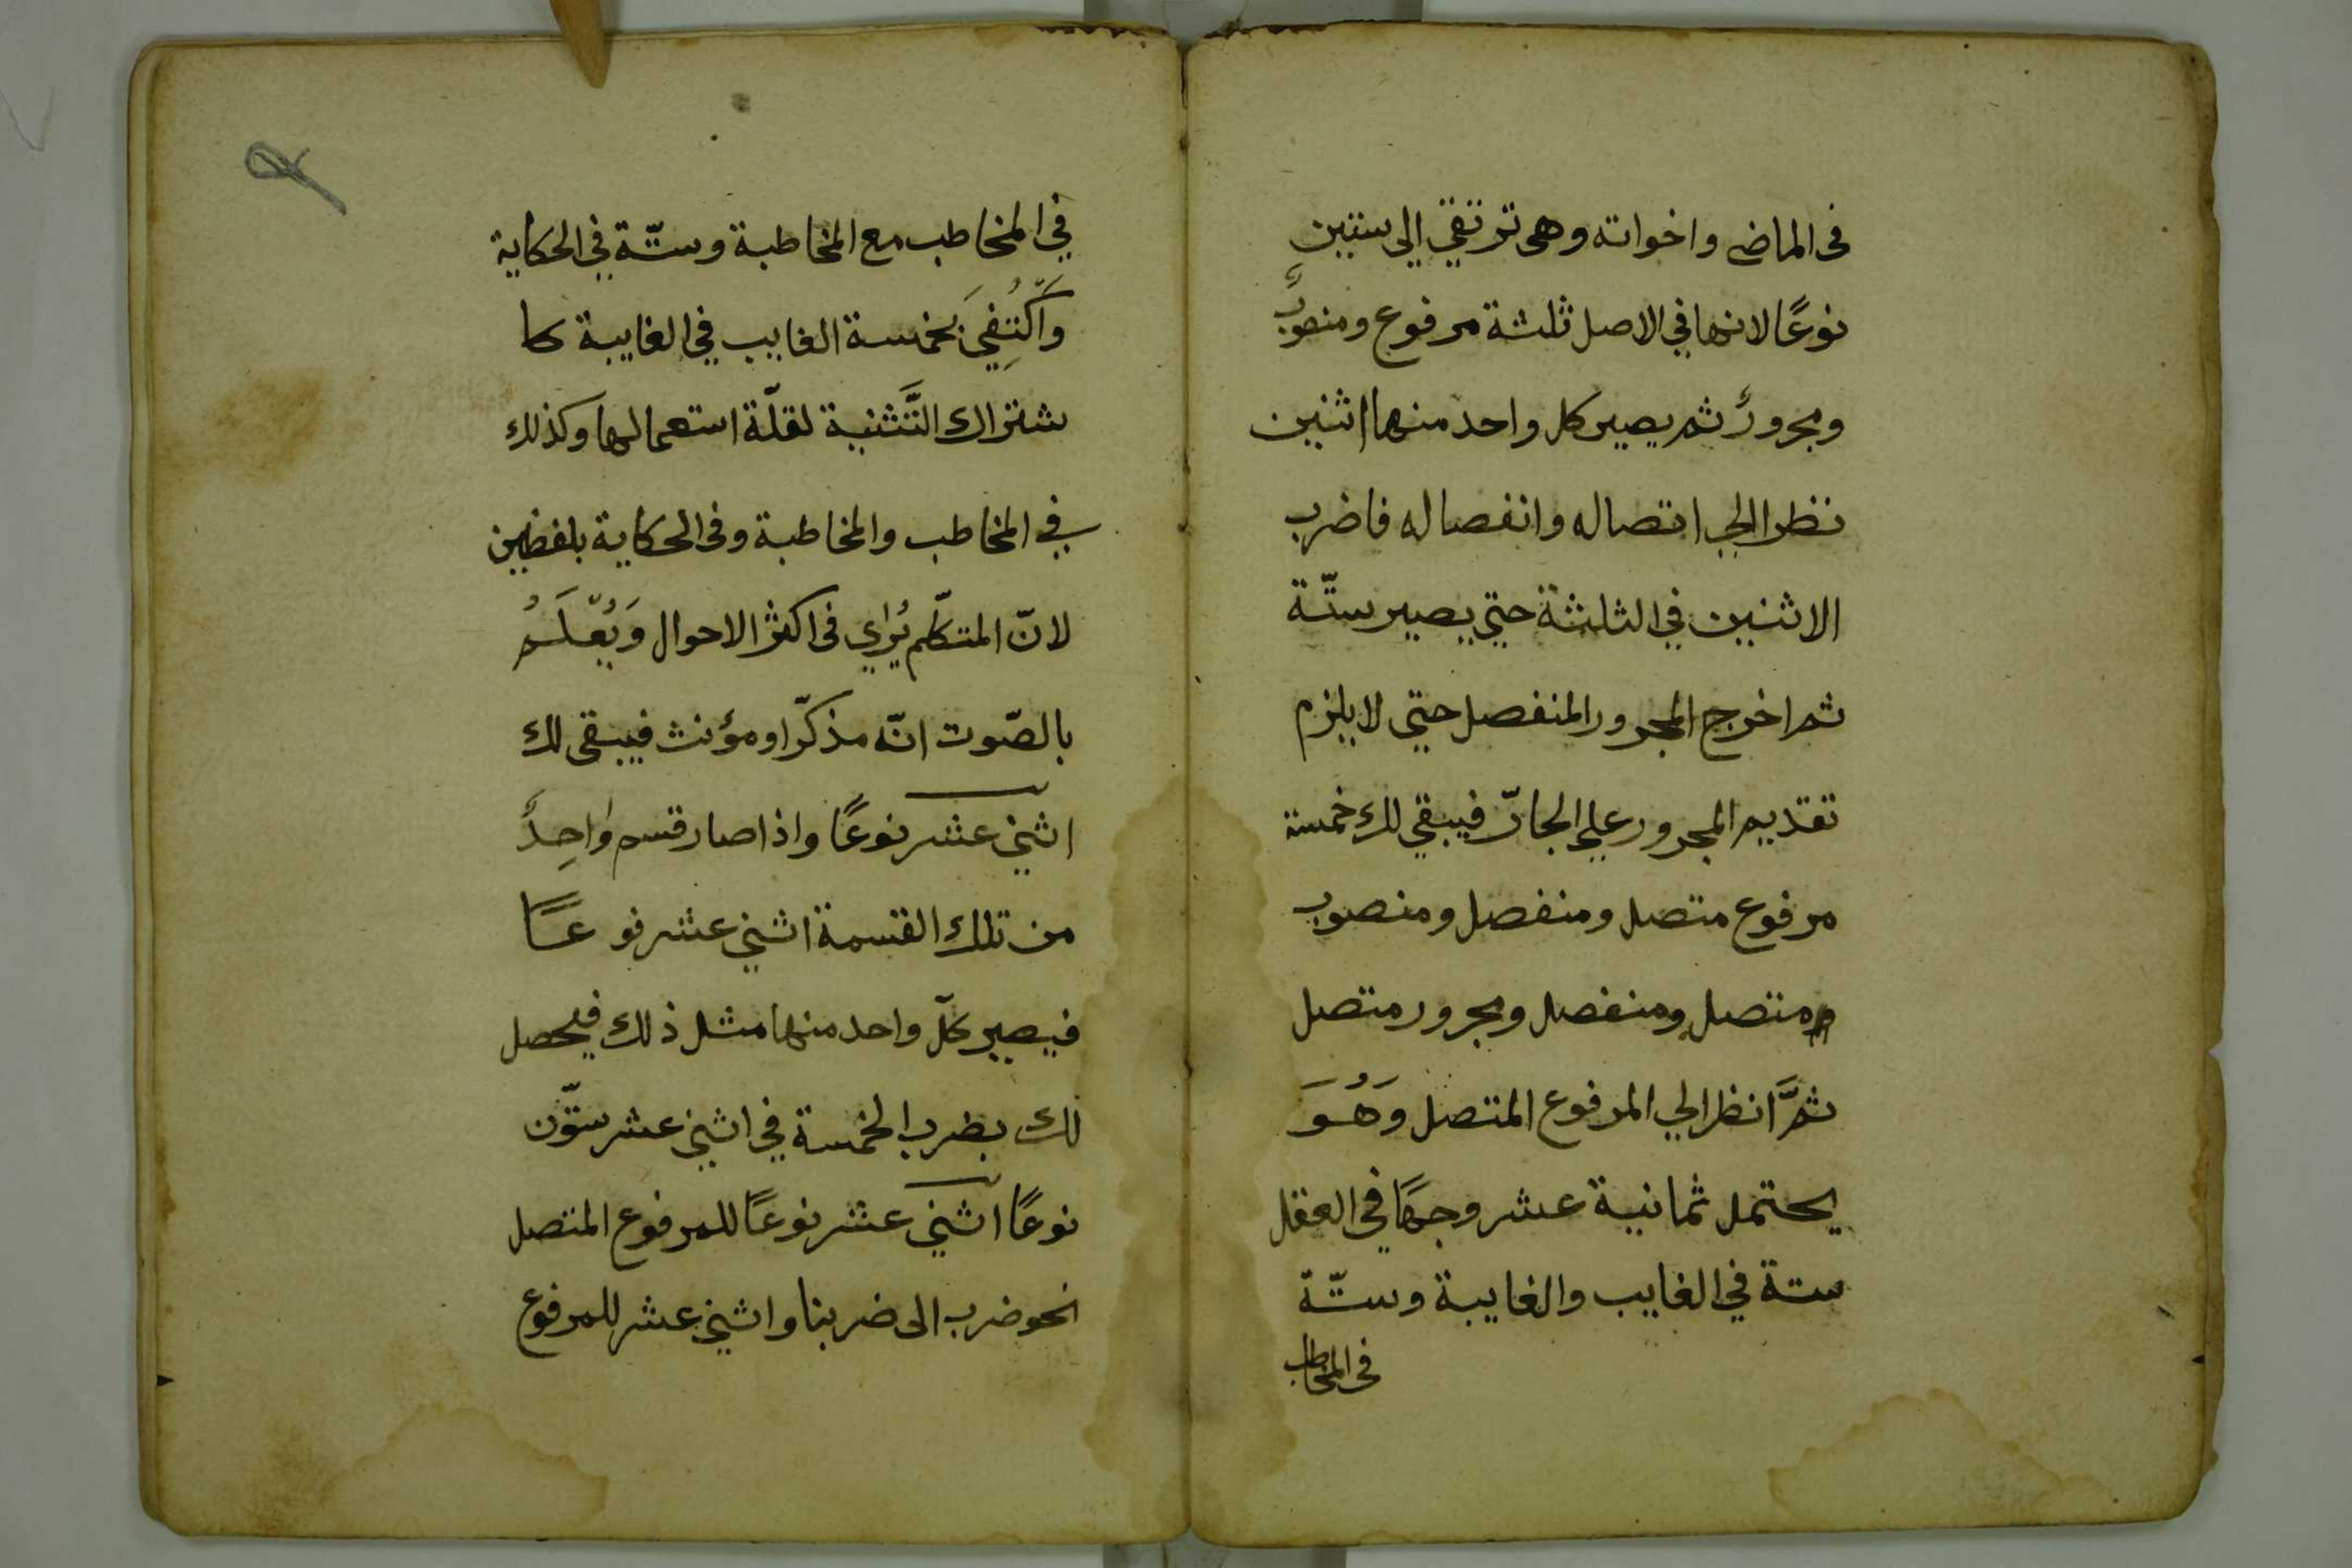 فى الماضى واخواته وهى ترتقي الى ستين
نوعًا لانها في الاصل ثلثة مرفوع ومنصوبٌ
ومجرورٌ ثم يصير كل واحد منهما اثنين
نظرا الي اتصاله وانفصاله فاضرب
الاثنين في الثلثة حتي يصير ستّة
ثم اخرج المجرور المنفصل حتى لا يلزم
تقديم المجرور علي الجارّ فيبقي لك خمسة
مرفوع متصل ومنفصل ومنصوب
متصل ومنفصل ومجرور متصل
ثمَّ انظر الي المرفوع المتصل وَهُوَ
يحتمل ثمانية عشر وجهًا في العقل
ستة في الغايب والغايبة وستّة
فى المخاطب
في المخاطب مع المخاطبة وستّة في الحكاية
وَاكْتُفِيَ بخمسة الغايب في الغايبة كا
شتراك التَّثنية لقلّة استعمالها وكذلك
في المخاطب والمخاطبة وفى الحكاية بلفظين
لانّ المتكلّم يُرٰي فى اكثر الاحوال وَيُعْلَمُ
بالصّوت انّه مذكّر او مؤنث فيبقى لك
اثني عشر نوعًا واذا صار قسم وٰاحِدٌ
من تلك القسمة اثني عشر نوعًا
فيصير كلّ واحد منها مثل ذلك فيحصل
لك بضرب الخمسة في اثني عشر ستّون
نوعًا اثني عشر نوعًا للمرفوع المتصل
نحو ضرب الى ضربنا واثني عشر للمرفوع